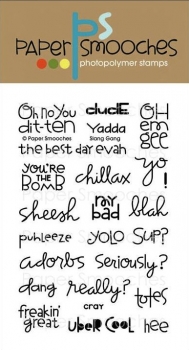 ps
PAPER SMOOCHES
photopolymer stamps
Oh no You
dit-ten
dude
OH
em
gee
Yadda
© Paper Smooches
Slang Gang
the best day evah
you're
THE
BOMB
chillax
yo!
sheesh
my
bad
blah
puhleeze
YOLO
SUP?
adorbs
Seriously?
dang
really?
totes
freakin'
great
cray
UBER COOL
hee